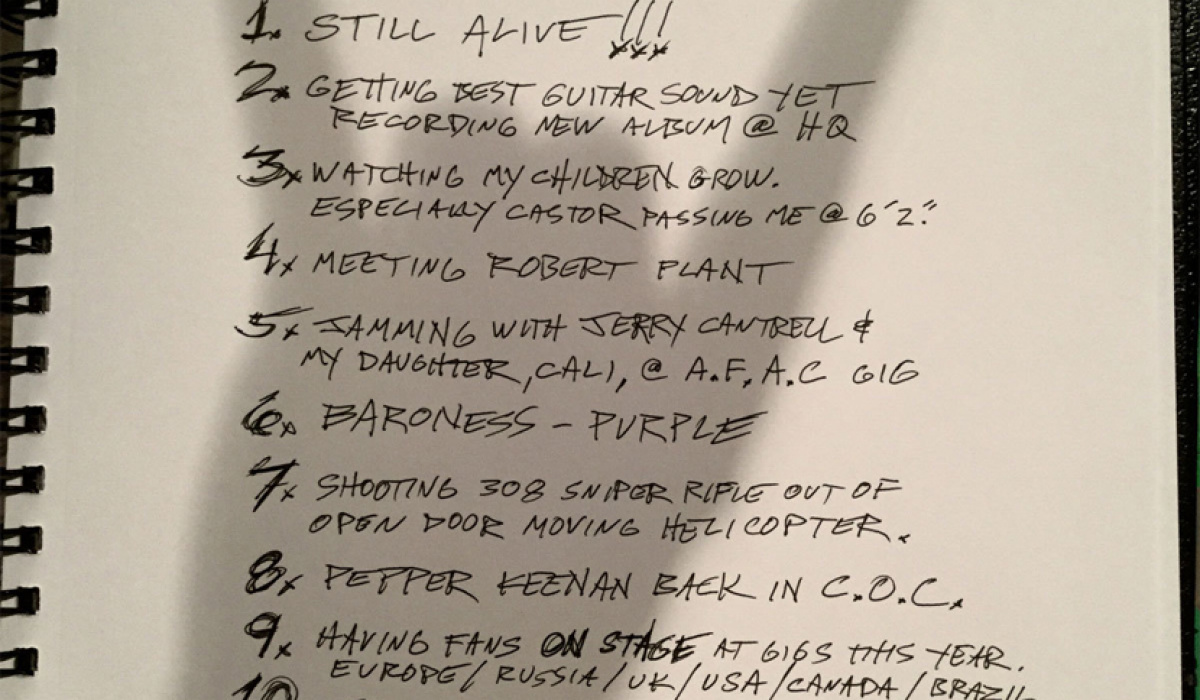 1. STILL ALIVE!!!
2x GETTING BEST GUITAR SOUND YET
RECORDING NEW ALBUM @ HQ
3x WATCHING MY CHILDREN GROW.
ESPECIALLY CASTOR PASSING ME @ 6'2".
4x MEETING ROBERT PLANT
5x JAMMING WITH JERRY CANTRELL &
MY DAUGHTER, CALI, @ A.F.A.C GIG
6x BARONESS – PURPLE
7x SHOOTING 308 SNIPER RIFLE OUT OF
OPEN DOOR MOVING HELICOPTER.
8x PEPPER KEENAN BACK IN C.O.C.
9x HAVING FANS ON STAGE AT GIGS THIS YEAR.
EUROPE/RUSSIA/UK/USA/CANADA/BRAZIL
10